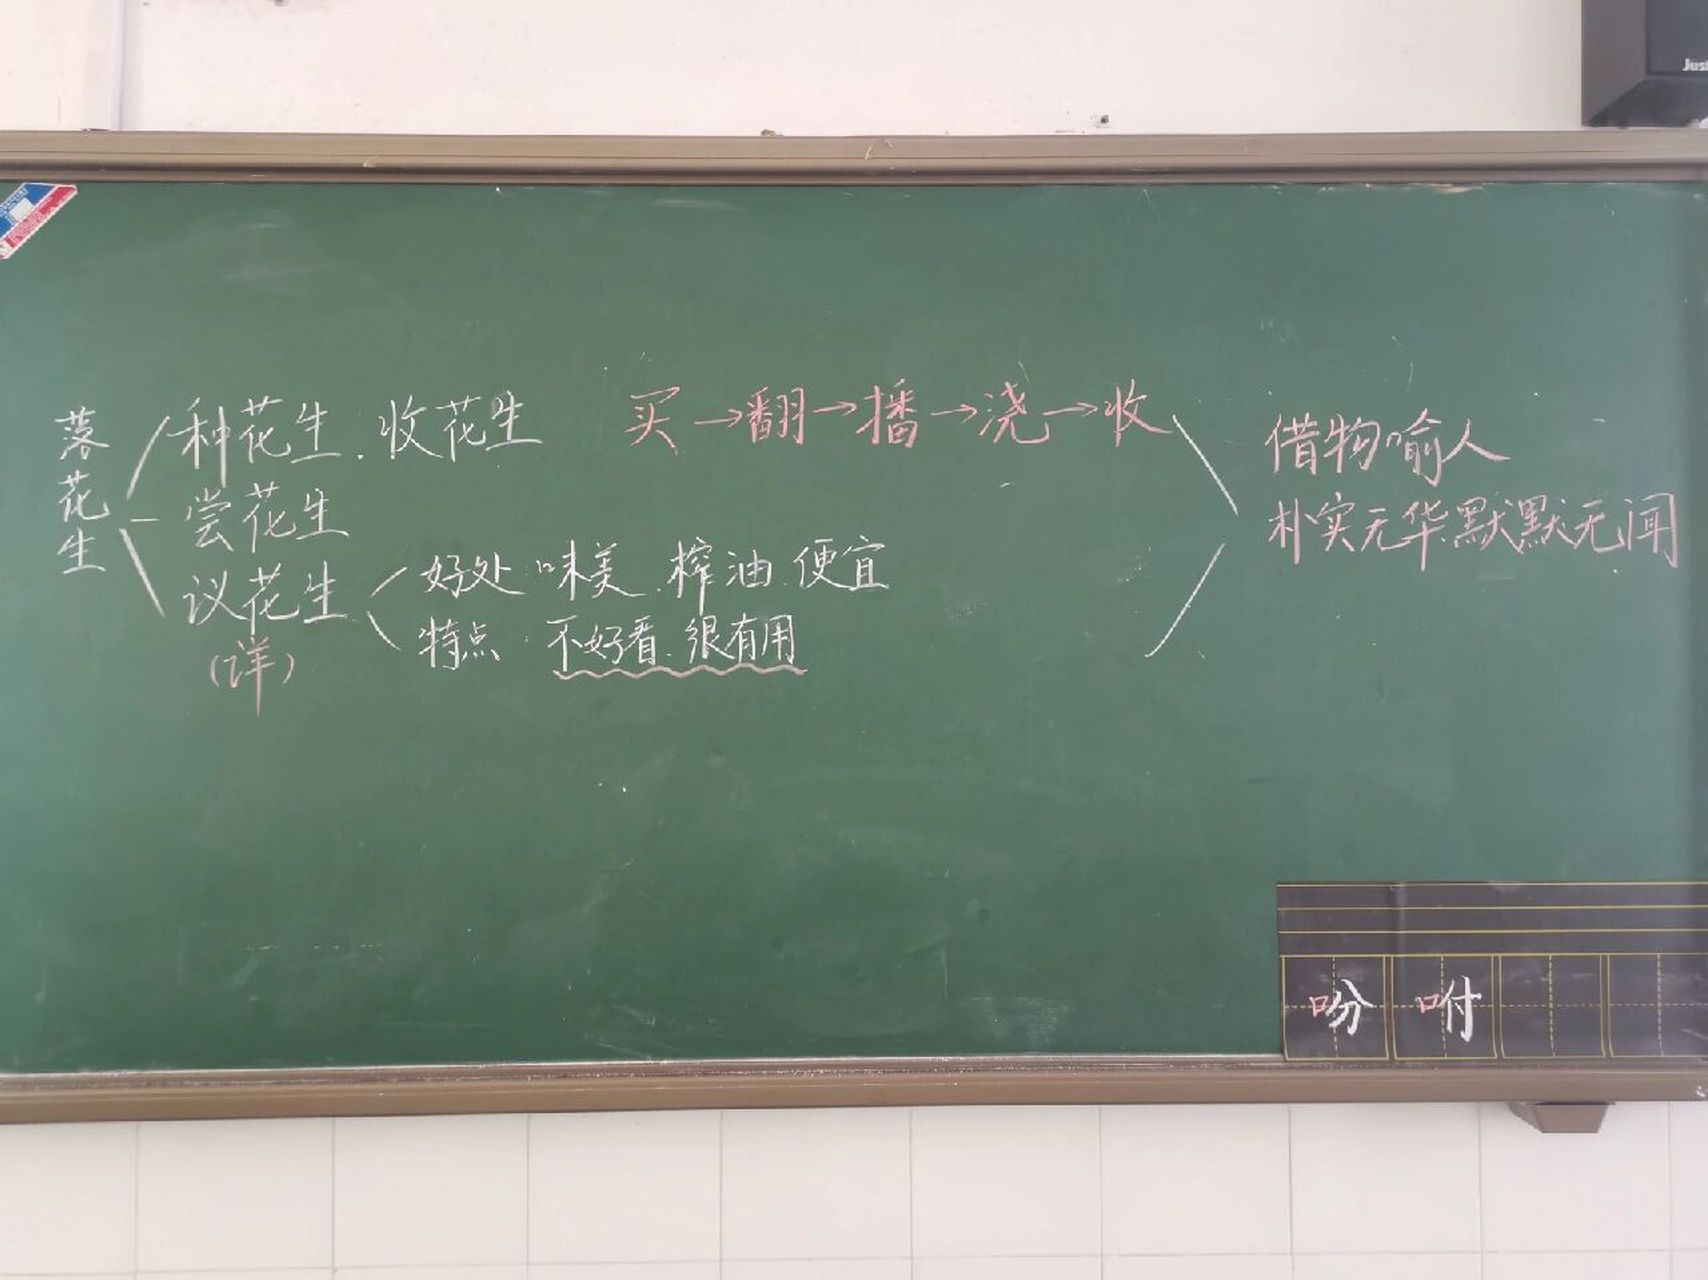 落花生
种花生.收花生 买→翻→播→浇→收
尝花生
议花生
(详)
好处 味美.榨油.便宜
特点 不好看.很有用
借物喻人
朴实无华.默默无闻
吩咐
Just